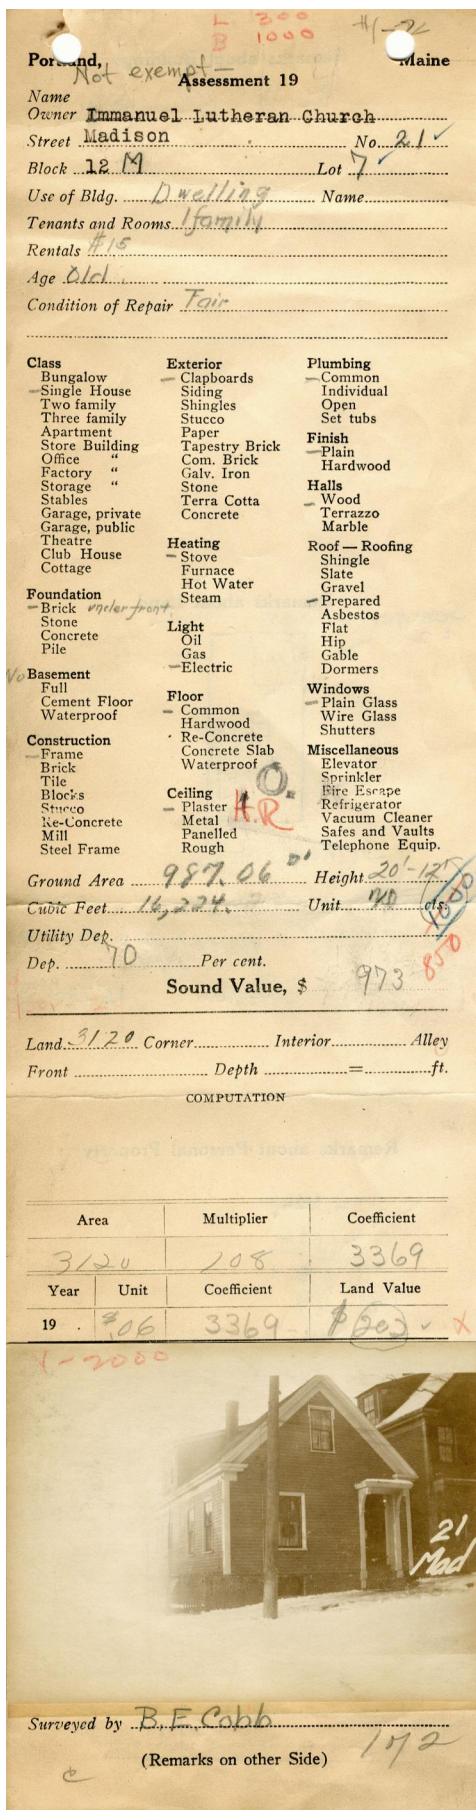 L 300
B 1000
Portland, Maine
Not exempt—
Assessment 19
Name
Owner Immanuel Lutheran Church
Street Madison No. 21
Block 12 M Lot 7
Use of Bldg. Dwelling Name
Tenants and Rooms 1 family
Rentals $15
Age Old
Condition of Repair Fair
Class
Bungalow
Single House
Two family
Three family
Apartment
Store Building
Office "
Factory "
Storage "
Stables
Garage, private
Garage, public
Theatre
Club House
Cottage
Foundation
Brick under front
Stone
Concrete
Pile
No Basement
Full
Cement Floor
Waterproof
Construction
Frame
Brick
Tile
Blocks
Stucco
Re-Concrete
Mill
Steel Frame
Exterior
Clapboards
Siding
Shingles
Stucco
Paper
Tapestry Brick
Com. Brick
Galv. Iron
Stone
Terra Cotta
Concrete
Heating
Stove
Furnace
Hot Water
Steam
Light
Oil
Gas
Electric
Floor
Common
Hardwood
Re-Concrete
Concrete Slab
Waterproof
O.
H.R
Ceiling
Plaster
Metal
Panelled
Rough
Plumbing
Common
Individual
Open
Set tubs
Finish
Plain
Hardwood
Halls
Wood
Terrazzo
Marble
Roof — Roofing
Shingle
Slate
Gravel
Prepared
Asbestos
Flat
Hip
Gable
Dormers
Windows
Plain Glass
Wire Glass
Shutters
Miscellaneous
Elevator
Sprinkler
Fire Escape
Refrigerator
Vacuum Cleaner
Safes and Vaults
Telephone Equip.
Ground Area 987.06 Height 20'-12'
Cubic Feet 16,224. Unit 20 cts.
1000
Utility Dep.
850
Dep. 70 Per cent.
Sound Value, $ 973
Land 3120 Corner Interior Alley
Front Depth = ft.
COMPUTATION
Area Multiplier Coefficient
3120 108 3369
Year Unit Coefficient Land Value
19 . $.06 3369 $ 202 X
2000
21
Mad
Surveyed by B.E.Cobb
(Remarks on other Side)
1 of 2
c